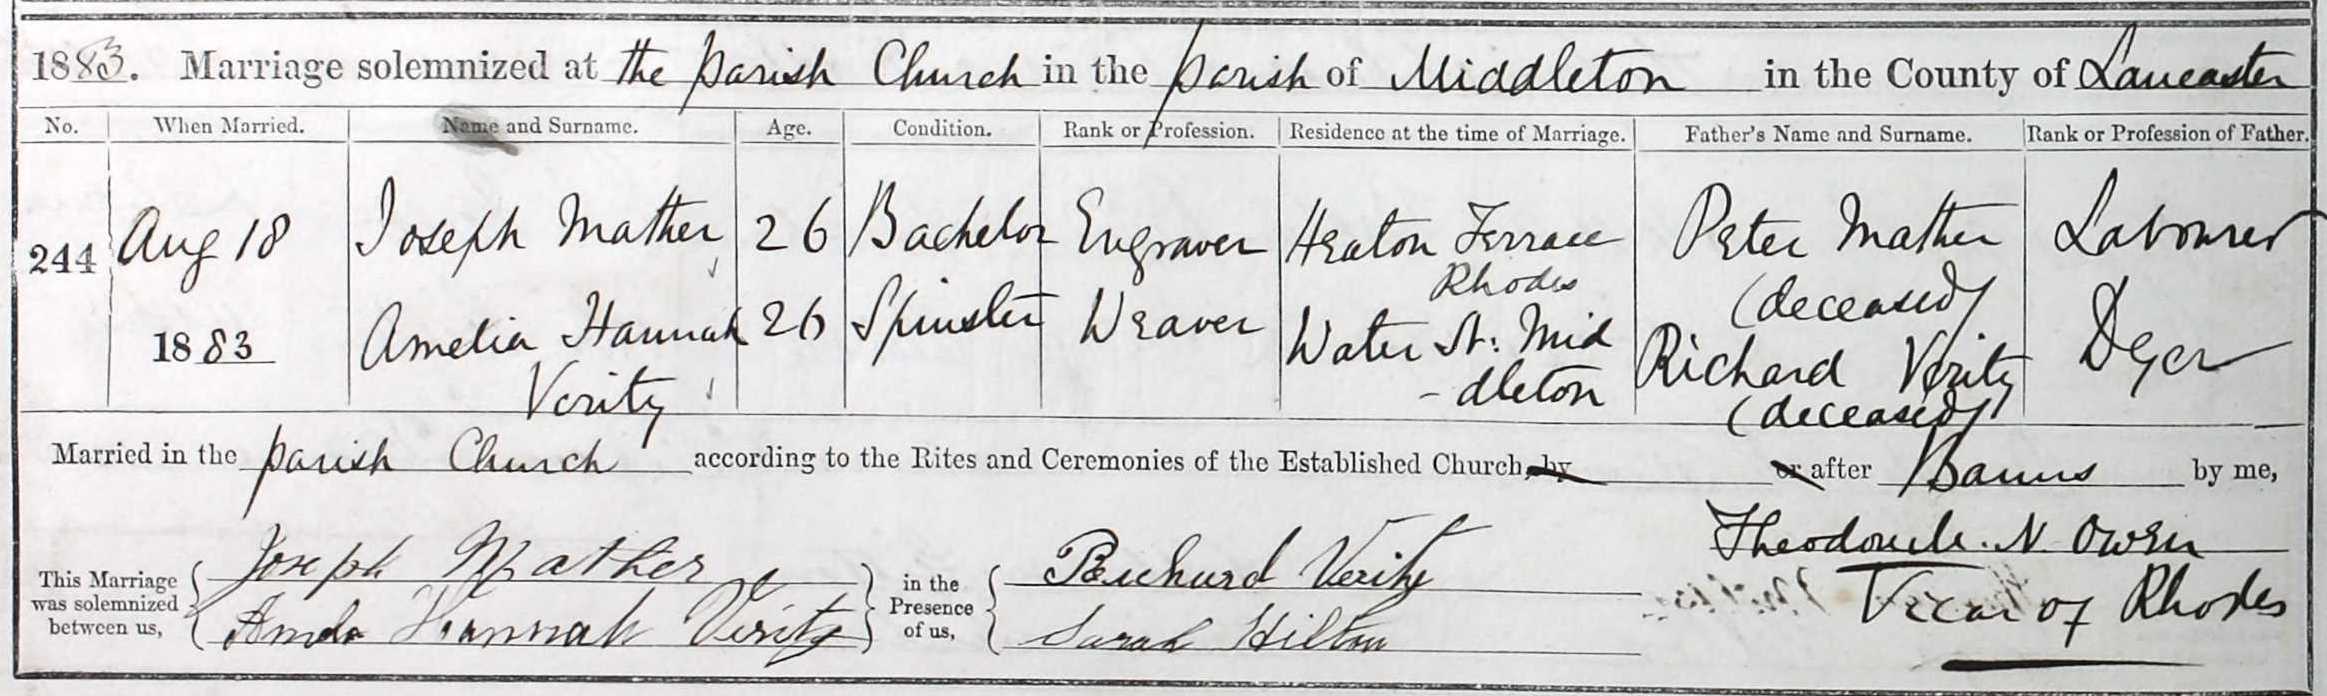 1883. Marriage solemnized at the parish Church in the parish of Middleton in the County of Lancaster
No. When Married. Name and Surname. Age. Condition. Rank or Profession. Residence at the time of Marriage. Father's Name and Surname. Rank or Profession of Father.
244 Aug 18 Joseph Mather 26 Bachelor Engraver Heaton Terrace Peter Mather Labourer
Rhodes (deceased)
1883 Amelia Hannah 26 Spinster Weaver Water St. Mid Richard Verity Dyer
Verity -dleton (deceased)
Married in the parish Church according to the Rites and Ceremonies of the Established Church, by or after Banns by me,
This Marriage was solemnized between us, Joseph Mather in the Presence of us, Richard Verity N. Owen
Hannah Verity Sarah Hilton Vicar of Rhodes